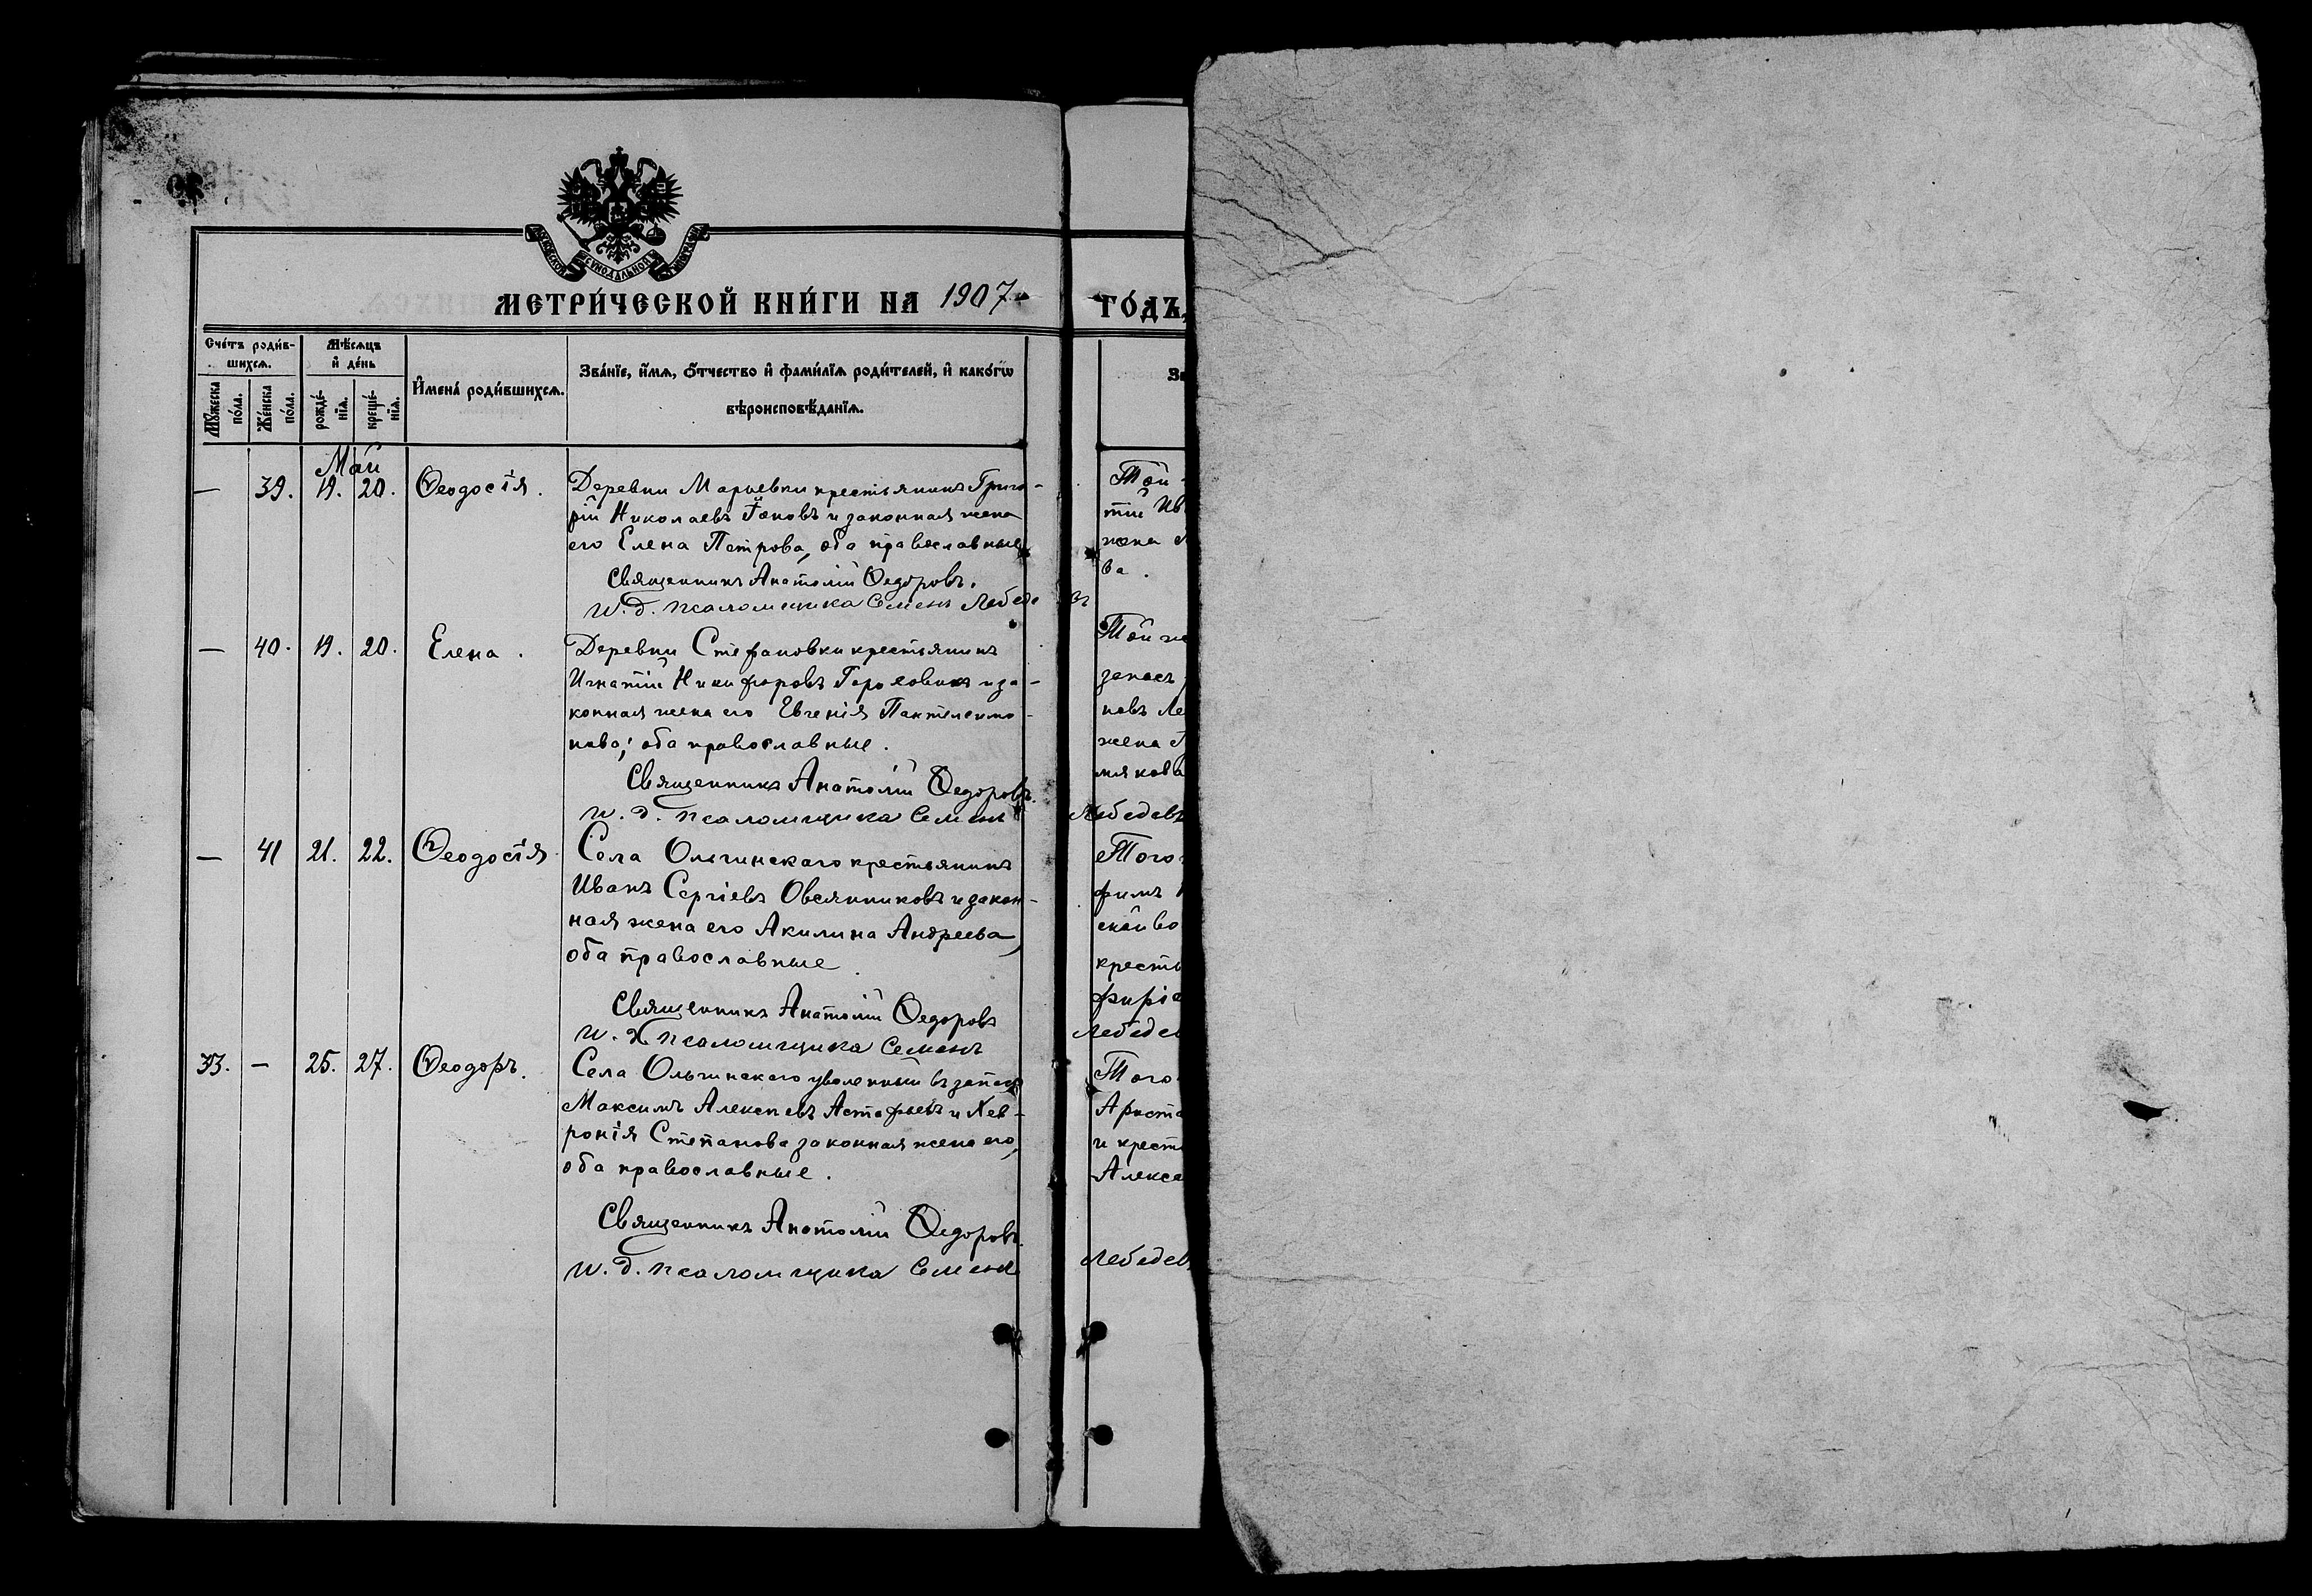 МОСКОВСКОЙ СѴНОДАЛЬНОЙ ТИПОГРАФІИ
МЕТРИ́ЧЕСКОЙ КНИ́ГИ НА 1907 ГО́ДЪ,
Сче́тъ роди́в-
шихсѧ.
Мѣ́сѧцъ
и҆ де́нь
Мꙋ́жеска по́ла.
Же́нска по́ла.
рожде́-
нїѧ.
креще́-
нїѧ.
И҆мена̀ роди́вшихсѧ.
Зва́нїе, и҆́мѧ, ѻ҆́тчество и҆ фами́лїѧ роди́телей, и҆ како́гѡ
вѣроисповѣ́данїѧ.
Май
— 39. 19. 20. Ѳеодосія. Деревни Марьевки крестьянинъ Григо-
рій Николаевъ и законная жена
его Елена Петрова, оба православные
Священникъ Анатолій Ѳедоровъ.
И. д. псаломщика Семенъ Лебедевъ
— 40. 19. 20. Елена. Деревни Стефановки крестьянинъ
Игнатій Никифоровъ и за-
конная жена его Евгенія Пантелеимо-
нова; оба православные.
Священникъ Анатолій Ѳедоровъ.
И. д. псаломщика Семенъ Лебедевъ
— 41 21. 22. Ѳеодосія Села Ольгинскаго крестьянинъ
Иванъ Сергіевъ Овсянниковъ и закон-
ная жена его Акилина Андреева,
оба православные.
Священникъ Анатолій Ѳедоровъ
И. д. псаломщика Семенъ Лебедев
33. — 25. 27. Ѳеодоръ. Села Ольгинскаго уволенный въ запасъ
Максимъ Алексѣевъ Астафьевъ и Хев-
ронія Степанова законная жена его,
оба православные.
Священникъ Анатолій Ѳедоровъ.
И. д. псаломщика Семенъ Лебедевъ
Той
тій Ив
жена
ва.
Той же
запас
новъ Ле
жена
мякова
Того
филъ
ской во
кресть
фирі
Того
Ариста
и крест
Алекса